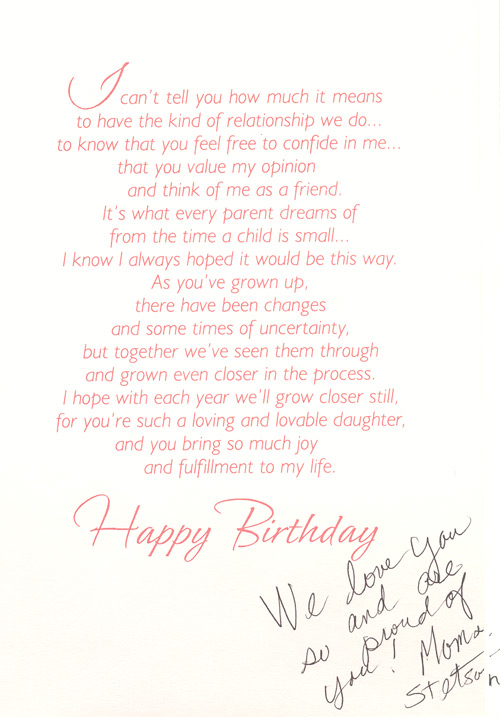 I can't tell you how much it means
to have the kind of relationship we do...
to know that you feel free to confide in me...
that you value my opinion
and think of me as a friend.
It's what every parent dreams of
from the time a child is small...
I know I always hoped it would be this way.
As you've grown up,
there have been changes
and some times of uncertainty,
but together we've seen them through
and grown even closer in the process.
I hope with each year we'll grow closer still,
for you're such a loving and lovable daughter,
and you bring so much joy
and fulfillment to my life.
Happy Birthday
We love you
so and are
proud of
you! Mom &
Stetson